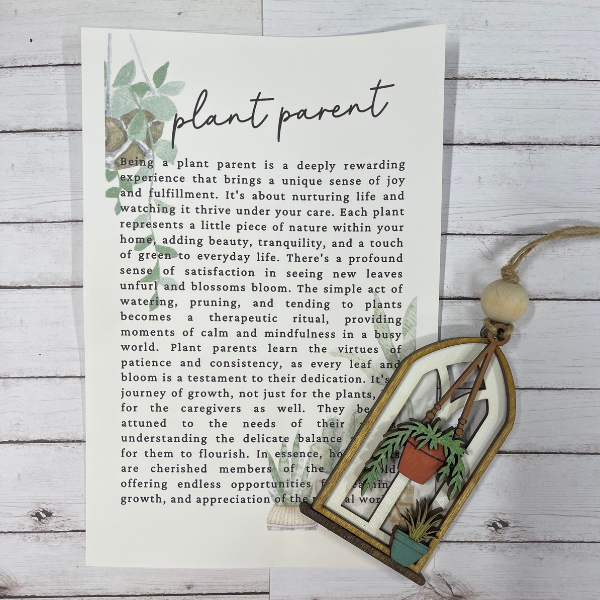 plant parent
Being a plant parent is a deeply rewarding
experience that brings a unique sense of joy
and fulfillment. It's about nurturing life and
watching it thrive under your care. Each plant
represents a little piece of nature within your
home, adding beauty, tranquility, and a touch
of green to everyday life. There's a profound
sense of satisfaction in seeing new leaves
unfurl and blossoms bloom. The simple act of
watering, pruning, and tending to plants
becomes a therapeutic ritual, providing
moments of calm and mindfulness in a busy
world. Plant parents learn the virtues of
patience and consistency, as every leaf and
bloom is a testament to their dedication. It's
journey of growth, not just for the plants,
for the caregivers as well. They
attuned to the needs of their
understanding the delicate balance
for them to flourish. In essence,
are cherished members of the
offering endless opportunities
growth, and appreciation of the